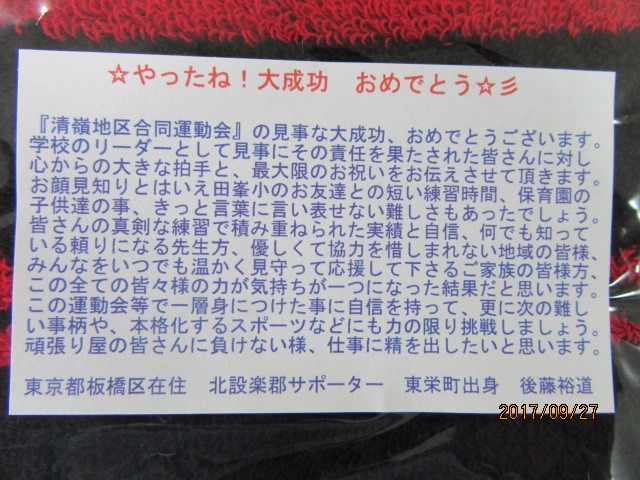 ☆やったね！大成功　おめでとう☆彡
『清嶺地区合同運動会』の見事な大成功、おめでとうございます。
学校のリーダーとして見事にその責任を果たされた皆さんに対し
心からの大きな拍手と、最大限のお祝いをお伝えさせて頂きます。
お顔見知りとはいえ田峯小のお友達との短い練習時間、保育園の
子供達の事、きっと言葉に言い表せない難しさもあったでしょう。
皆さんの真剣な練習で積み重ねられた実績と自信、何でも知って
いる頼りになる先生方、優しくて協力を惜しまれない地域の皆様、
みんなをいつでも温かく見守って応援して下さるご家族の皆様方、
この全ての皆々様の力が気持ちが一つになった結果だと思います。
この運動会等で一層身につけた事に自信を持って、更に次の難し
い事柄や、本格化するスポーツなどにも力の限り挑戦しましょう。
頑張り屋の皆さんに負けない様、仕事に精を出したいと思います。
東京都板橋区在住　北設楽郡サポーター　東栄町出身　後藤裕道
2017/09/27